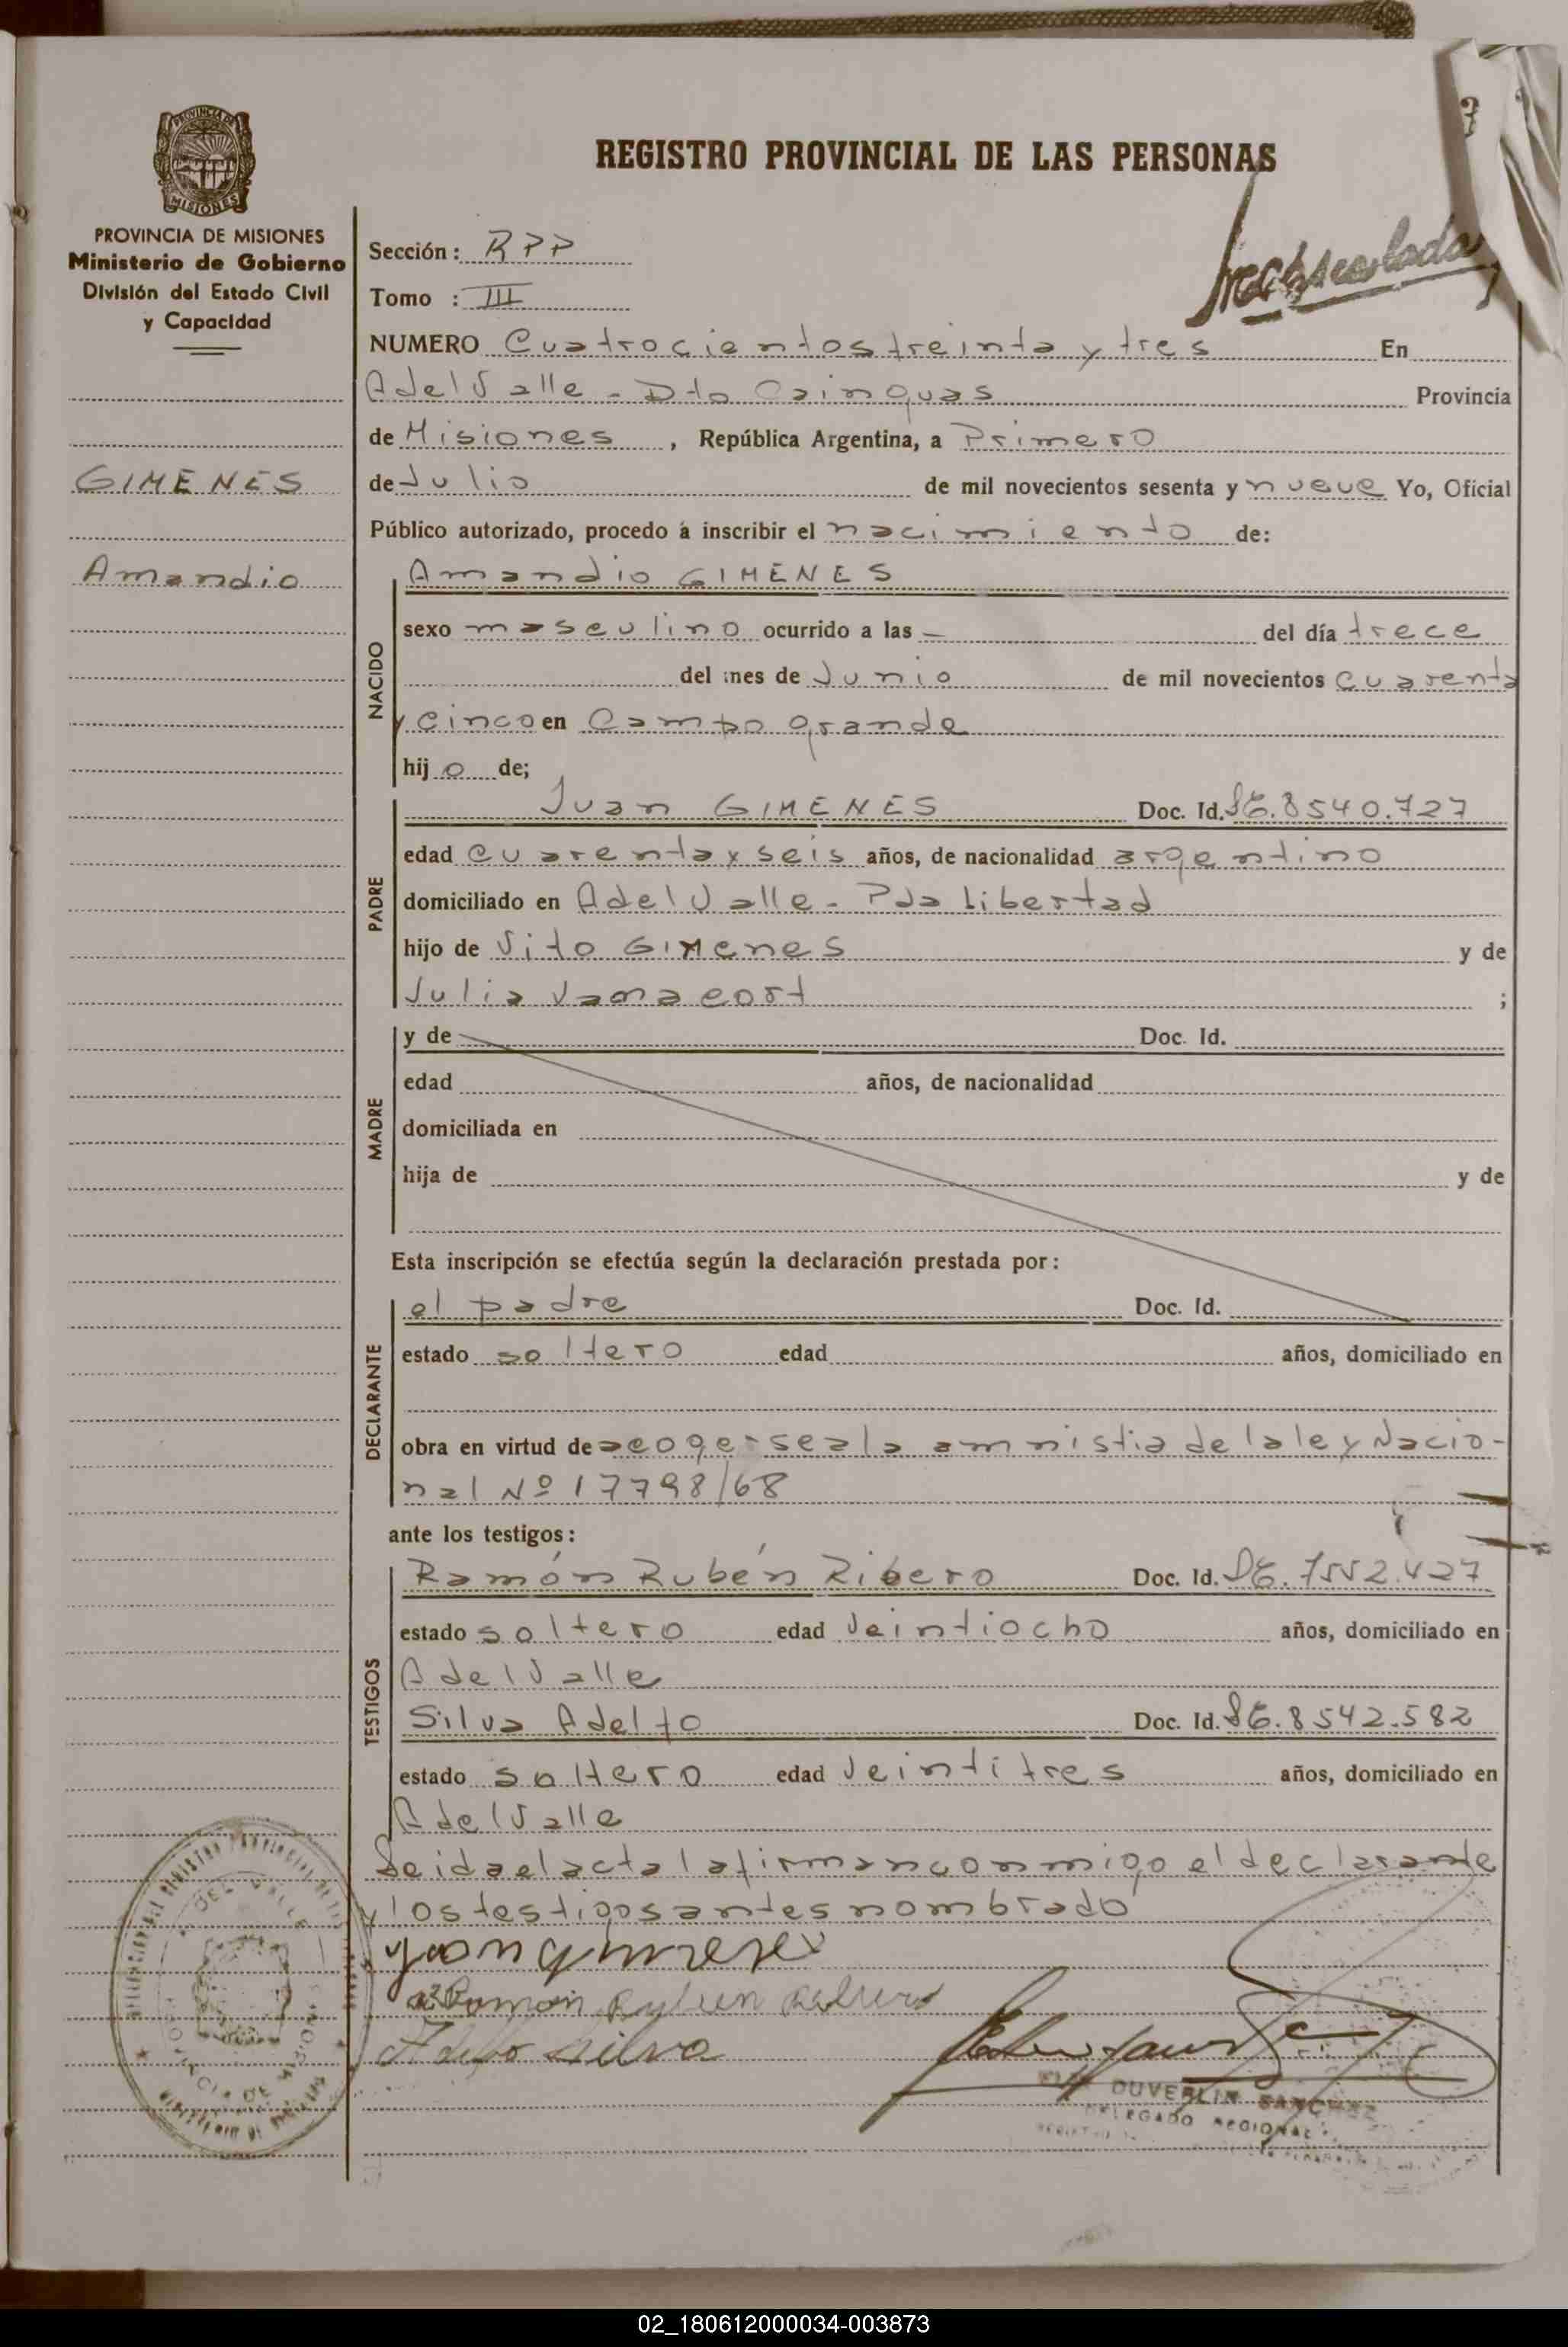 REGISTRO PROVINCIAL DE LAS PERSONAS
PROVINCIA DE MISIONES
Ministerio de Gobierno
División del Estado Civil
y Capacidad
GIMENES
Amandio
Sección: RPP
Tomo : III
NUMERO Cuatrocientos treinta y tres En
A del Valle - Dto Cainguas Provincia
de Misiones, República Argentina, a Primero
de Julio de mil novecientos sesenta y nueve Yo, Oficial
Público autorizado, procedo á inscribir el nacimiento de:
NACIDO
Amandio GIMENES
sexo masculino ocurrido a las - del día trece
del mes de Junio de mil novecientos cuarenta
y cinco en Campo grande
hijo de;
PADRE
Juan GIMENES Doc. Id. 8540.727
edad cuarenta y seis años, de nacionalidad argentino
domiciliado en A del Valle - Pda Libertad
hijo de Vito GIMenes y de
Julia ;
MADRE
y de Doc. Id.
edad años, de nacionalidad
domiciliada en
hija de y de
Esta inscripción se efectúa según la declaración prestada por:
DECLARANTE
el padre Doc. Id.
estado soltero edad años, domiciliado en
obra en virtud de acogerse a la amnistia de la ley Nacio-
nal Nº 17798/68
ante los testigos:
TESTIGOS
Ramón Rubén Ribero Doc. Id. 7552.427
estado soltero edad Veintiocho años, domiciliado en
A del Valle
Silva Adelfo Doc. Id. 8542.582
estado soltero edad Veintitres años, domiciliado en
A del Valle
Leida el acta la firman conmigo el declarante
y los testigos antes nombrado
Ramon Ruben Ribero
Adelfo Silva
DUVERLIN SANCHEZ
DELEGADO REGIONAL
02_180612000034-003873